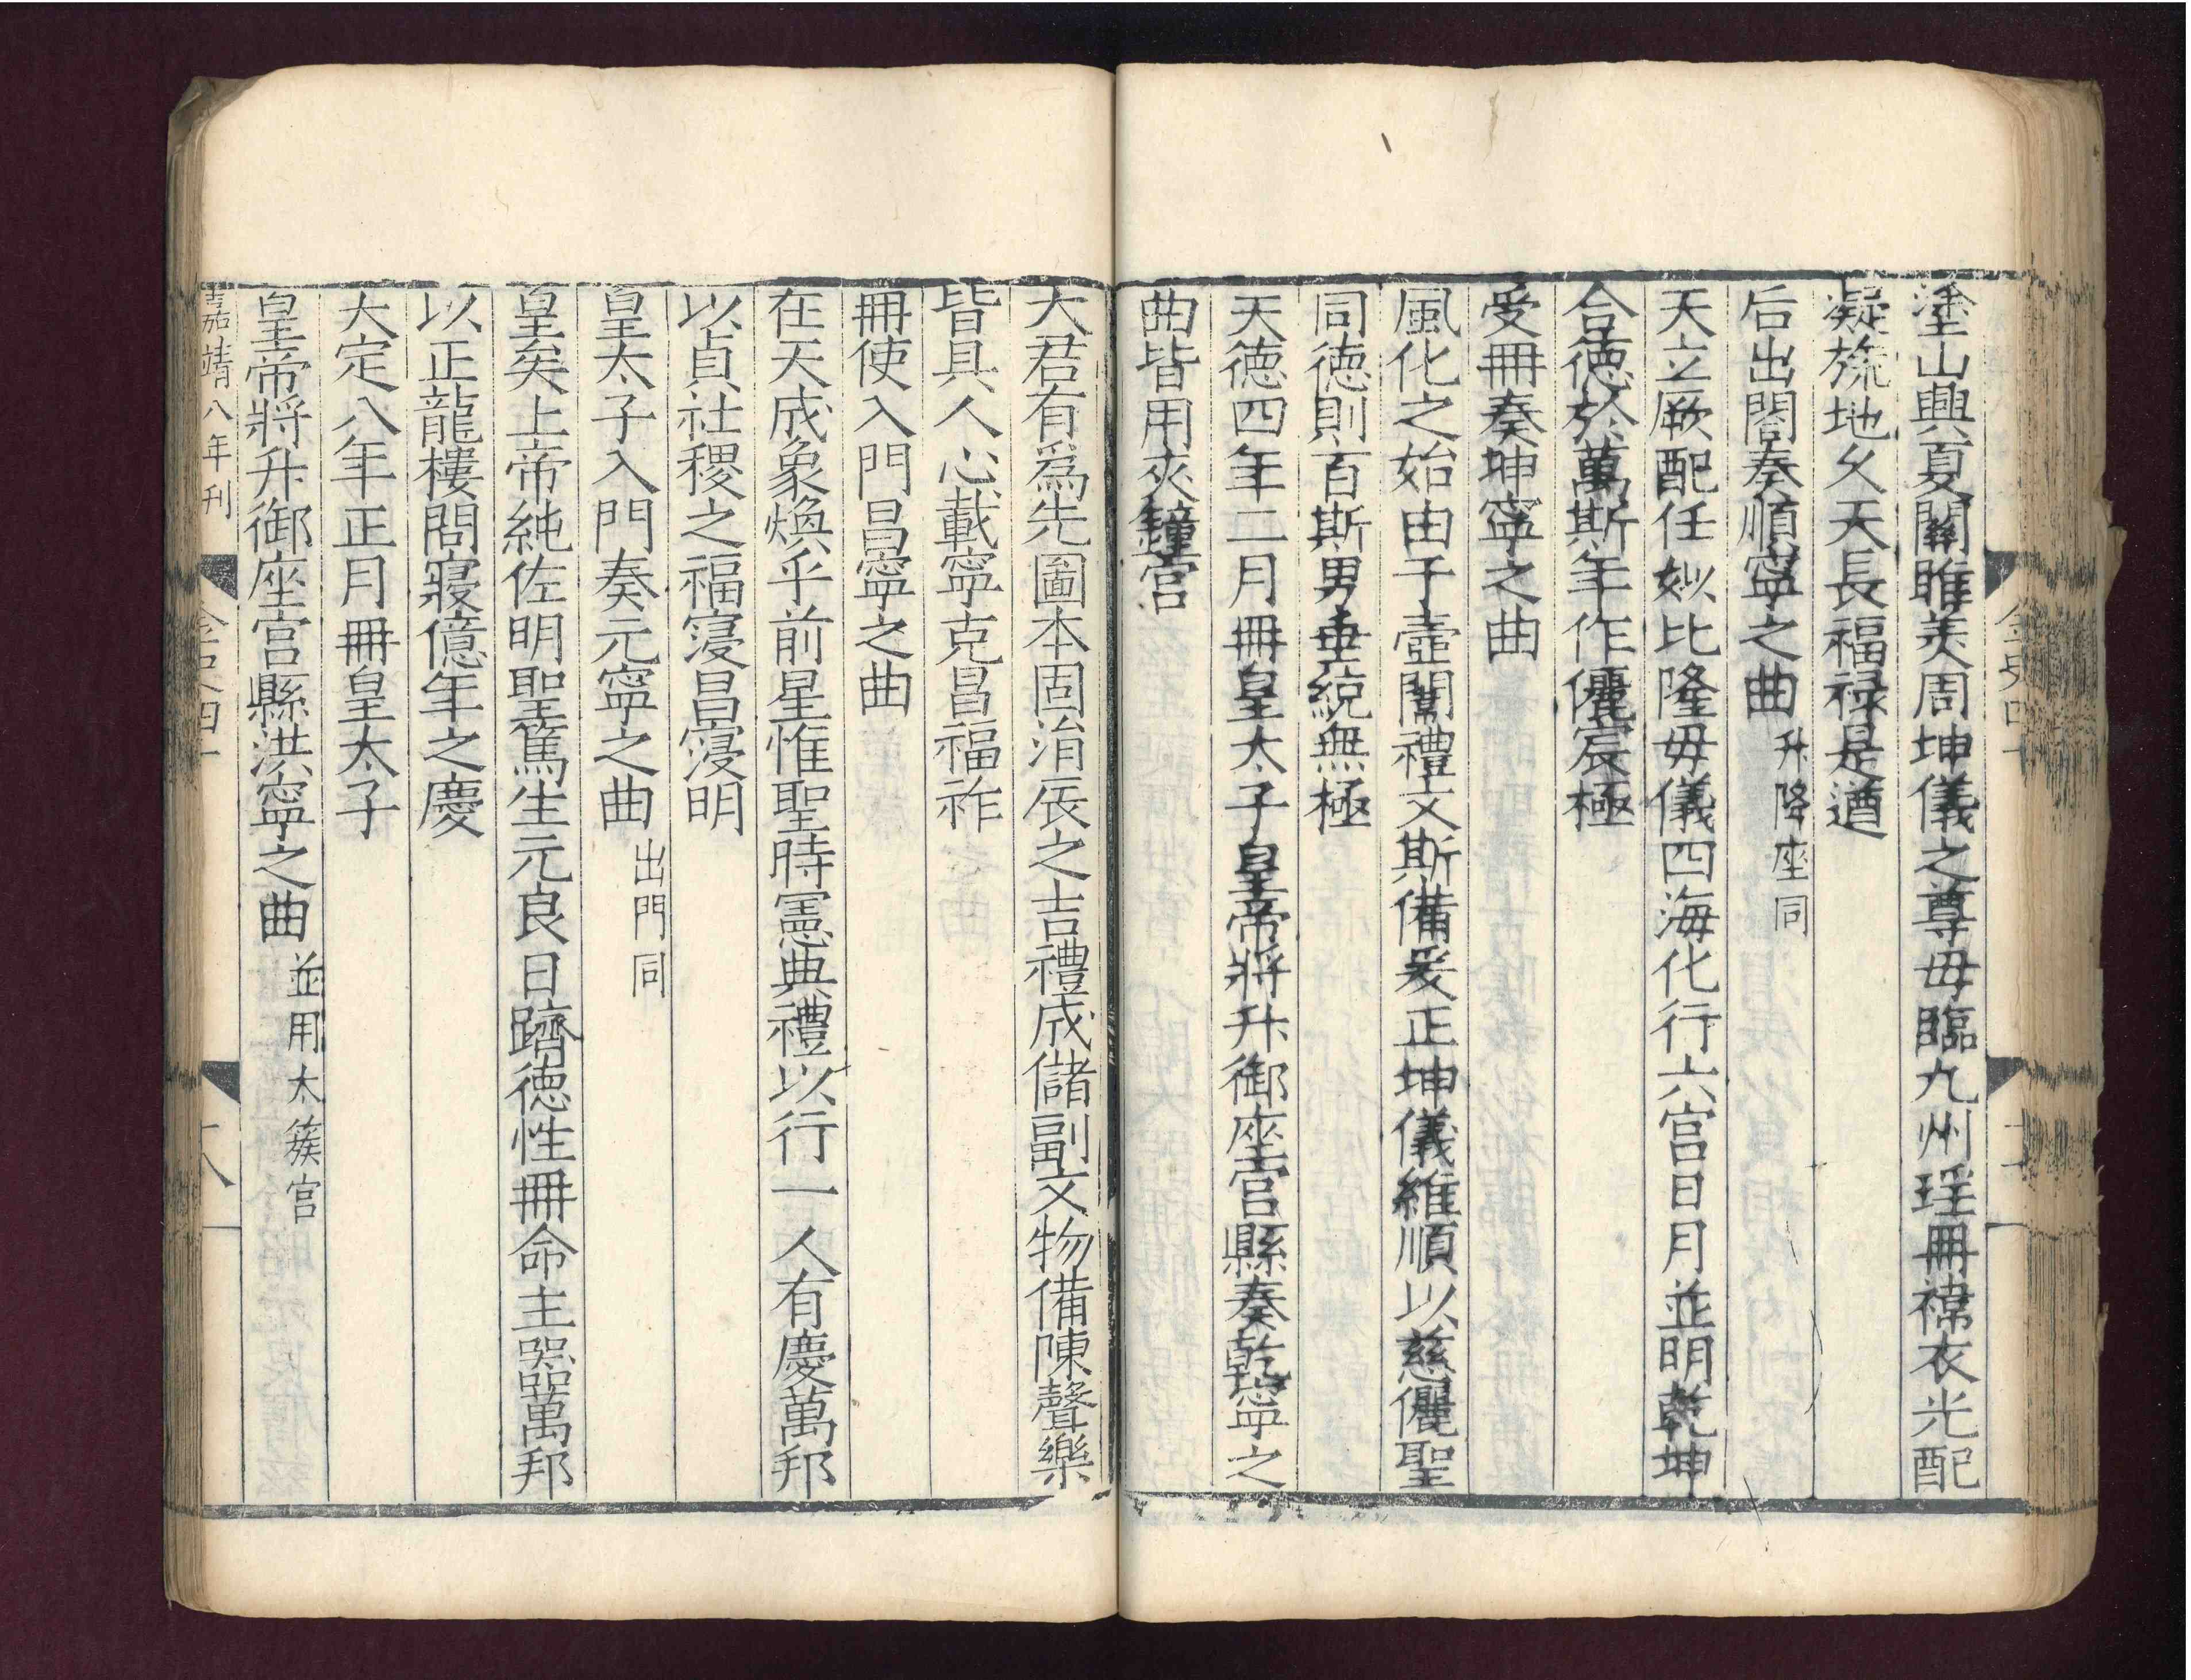 塗山興夏關雎美周坤儀之尊母臨九州瑶冊褘衣光配
凝旒地久天長福祿是遒
后出閤奏順寧之曲升降座同
天立厥配任姒比隆母儀四海化行六宫日月並明乾坤
合德於萬斯年作儷宸極
受冊奏坤寧之曲
風化之始由于壼闈禮文斯備爰正坤儀維順以慈儷聖
同德則百斯男垂統無極
天德四年二月冊皇太子皇帝將升御座宫縣奏乾寧之
曲皆用夾鐘宫
大君有爲先圖本固涓辰之吉禮成儲副文物備陳聲樂
皆具人心載寧克昌福祚
冊使入門昌寧之曲
在天成象煥乎前星惟聖時憲典禮以行一人有慶萬邦
以貞社稷之福寖昌寖明
皇太子入門奏元寧之曲出門同
皇矣上帝純佐明聖篤生元良日躋德性冊命主器萬邦
以正龍樓問寢億年之慶
大定八年正月冊皇太子
皇帝將升御座宫縣洪寧之曲並用太簇宫
嘉靖八年刊 金史四十 十八